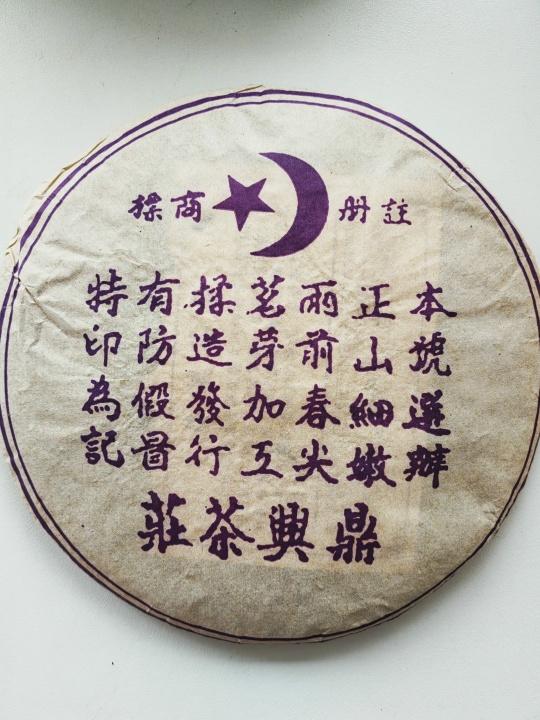 註册商標
本號選辦
正山細嫩
雨前春尖
茗芽加工
揉造發行
有防假冒
特印為記
鼎興茶莊